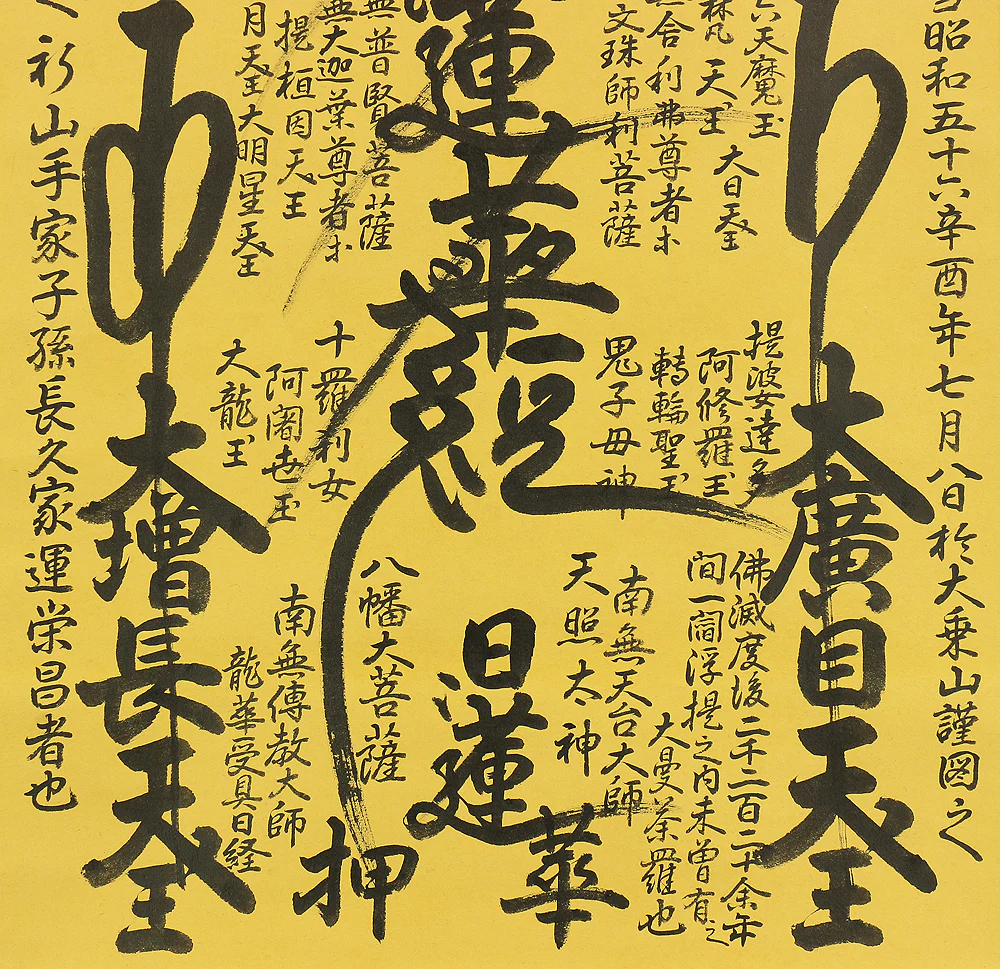 昭和五十六辛酉年七月八日於大乗山謹図之
大廣目天王
六天魔王
天王
大日天王
舎利弗尊者等
文珠師利菩薩
提婆達多
阿修羅王
轉輪聖王
鬼子母神
佛滅度後二千二百二十余年
間一閻浮提之内未曽有之
大曼荼羅也
南無天台大師
天照太神
蓮華經
日蓮
華押
無普賢菩薩
無大迦葉尊者等
提桓因天王
月天王大明星天王
十羅刹女
阿闍世王
大龍王
八幡大菩薩
南無傳教大師
龍華受具日経
大増長天王
杉山手家子孫長久家運栄昌者也